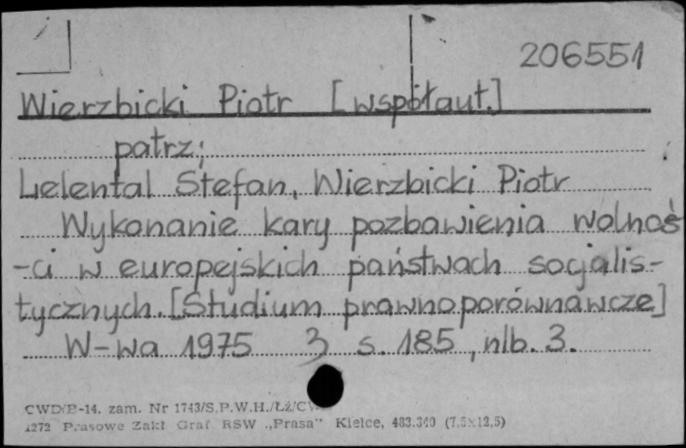 206551
Wierzbicki Piotr [współaut.]
patrz;
Lelental Stefan, Wierzbicki Piotr
Wykonanie kary pozbawienia wolnoś
-ci w europejskich państwach socjalis-
tycznych. [Studium prawnoporównawcze]
W-wa 1975 3 s. 185, nlb. 3.
CWD/B-14. zam. Nr 1743/S.P.W.H./Łź/C
1272 Prasowe Zakł Graf RSW „Prasa" Kielce, 483.340 (7,5x12,5)